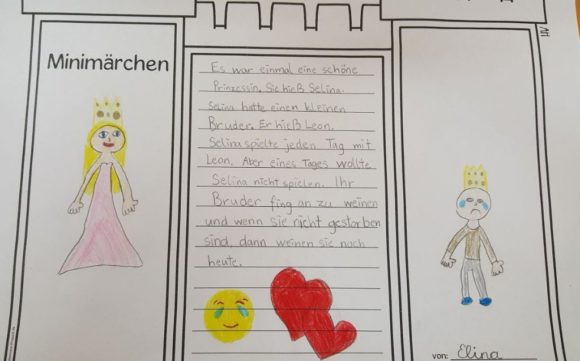 Minimärchen
Es war einmal eine schöne
Prinzessin. Sie hieß Selina.
Selina hatte einen kleinen
Bruder. Er hieß Leon.
Selina spielte jeden Tag mit
Leon. Aber eines Tages wollte
Selina nicht spielen. Ihr
Bruder fing an zu weinen
und wenn sie nicht gestorben
sind, dann weinen sie noch
heute.
von: Elina